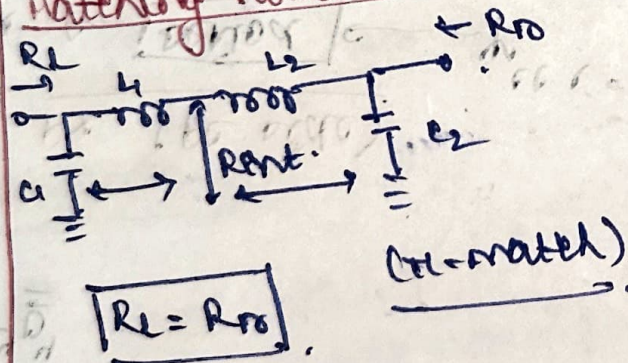 Matching
← Rπ0
RL →
L1
L2
C1
Rint.
C2
(π-match)
RL = Rπ0.